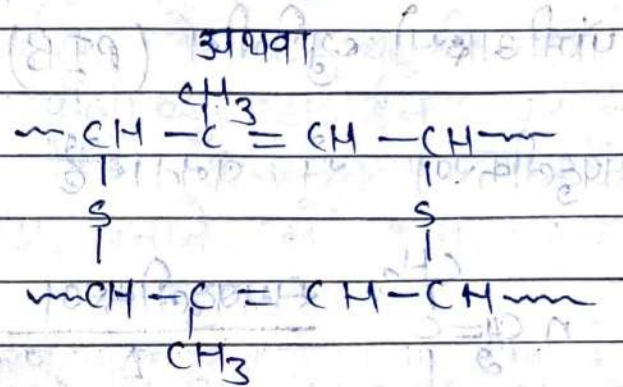 अथवा
CH3
~CH-C=CH-CH~
| |
S S
| |
~CH-C=CH-CH~
|
CH3